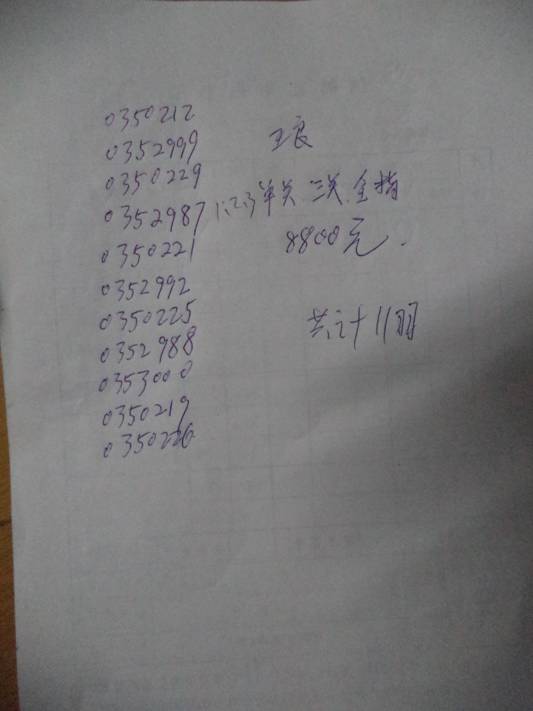 0350212
0352999
王良
0350229
0352987 1.2.3单关 三关 全指
8800元.
0350221
0352992
0350225
共计11羽
0352988
0353000
0350219
0350226